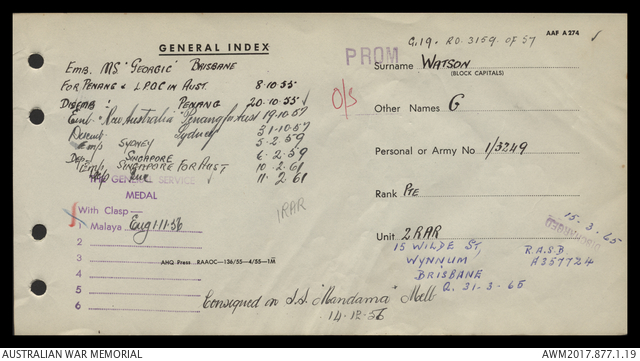 GENERAL INDEX
EMB. MS "GEORGIC" BRISBANE
FOR PENANG & LPOC IN AUST. 8·10·55
DISEMB: PENANG 20·10·55
Emb "New Australia" Penang for Aust 19·10·57
Disemb Sydney 31·10·57
Emb SYDNEY 5·2·59
Dis SINGAPORE 6·2·59
Emb SINGAPORE FOR AUST 10·2·61
11·2·61
THE GENERAL SERVICE
MEDAL
With Clasp—
1 Malaya Eng 111·56
2
3
4
5
6
AHQ Press RAAOC—136/55—4/55—1M
1RAR
Consigned on S.S. "Mandama" Melb
14·12·56
AAF A 274
G.19. RO. 3159. OF 57
PROM
O/S
Surname WATSON
(BLOCK CAPITALS)
Other Names G
Personal or Army No. 1/3249
Rank PTE
Unit 2 RAR
15·3·65
DISCHARGED
15 WILDE ST,
WYNNUM
BRISBANE
R.A.S.B
A357724
Q. 31-3-65
AUSTRALIAN WAR MEMORIAL
AWM2017.877.1.19